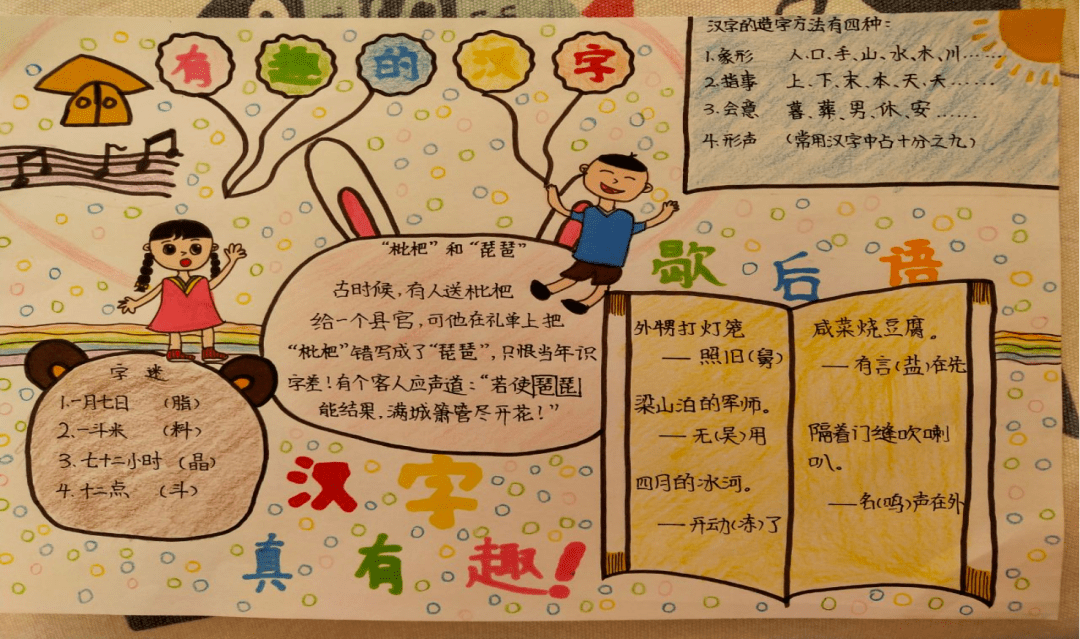 有趣的汉字
汉字的造字方法有四种：
1.象形 人、口、手、山、水、木、川……
2.指事 上、下、末、本、天、夫……
3.会意 暮、葬、男、休、安……
4.形声 （常用汉字中占十分之九）
“枇杷”和“琵琶”
古时候，有人送枇杷
给一个县官，可他在礼单上把
“枇杷”错写成了“琵琶”，只恨当年识
字差！有个客人应声道：“若使琵琶
能结果，满城箫管尽开花！”
字迷
1.一月七日 （脂）
2.一斗米 （料）
3.七十二小时 （晶）
4.十二点 （斗）
歇后语
外甥打灯笼
—照旧（舅）
梁山泊的军师。
—无（吴）用
四月的冰河。
—开动（冻）了
咸菜烧豆腐。
—有言（盐）在先
隔着门缝吹喇
叭。
—名（鸣）声在外
汉字
真有趣！